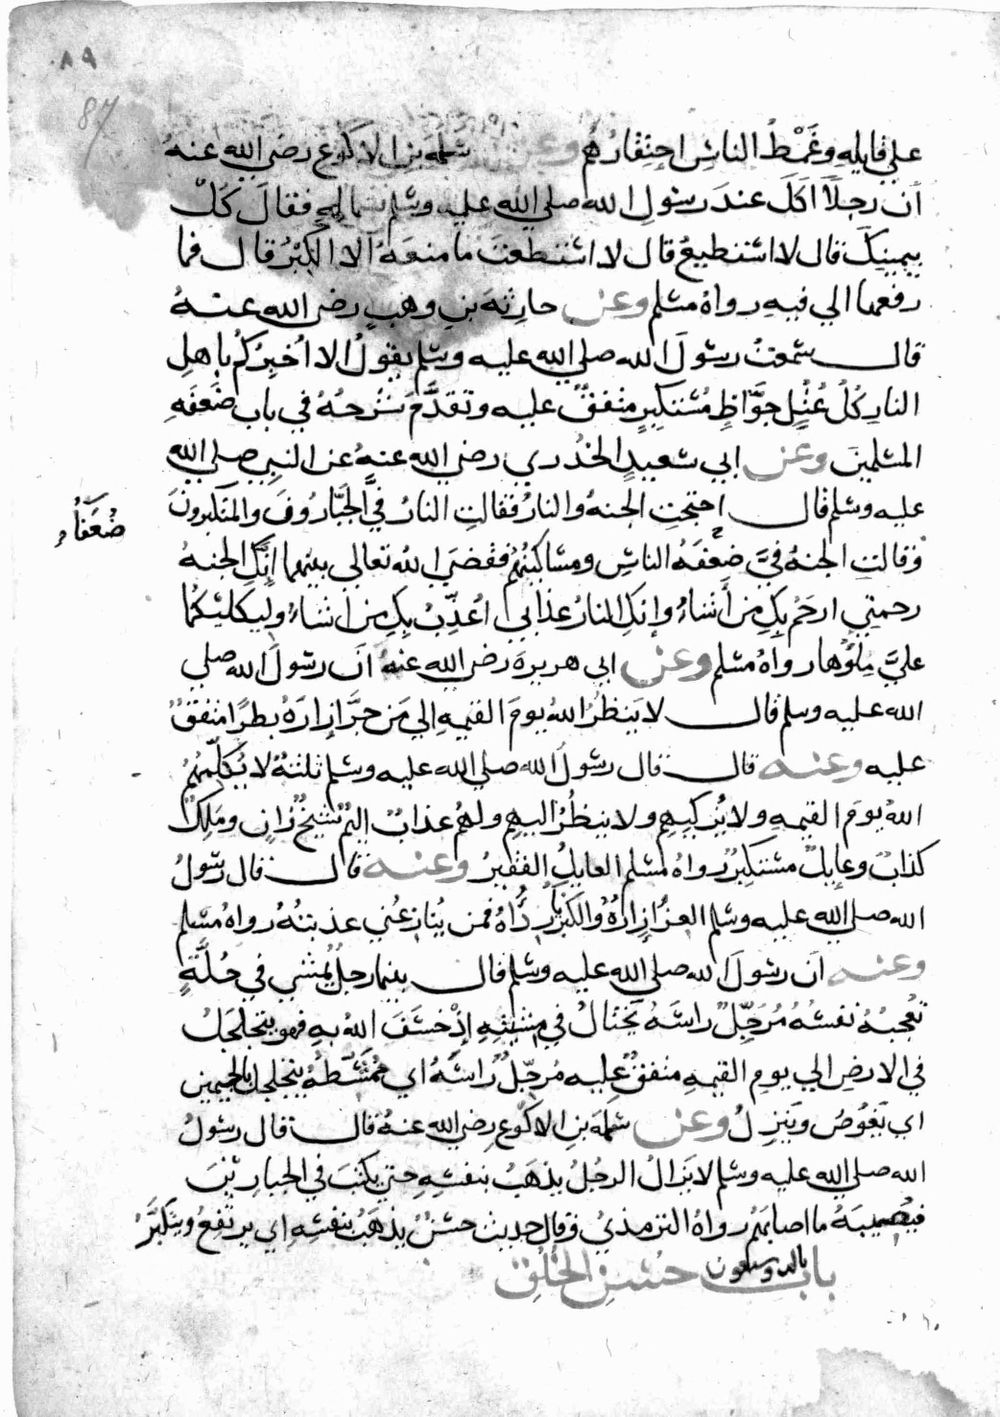 ٨٩
87
علي قايله وغمط الناس احتقارهم وعن سلمة بن الاكوع رضي الله عنه
ان رجلا اكل عند رسول الله صلي الله عليه وسلم بشماله فقال كل
بيمينك قال لا استطيع قال لا استطعت ما منعه الا الكبر قال فما
رفعها الي فيه رواه مسلم وعن حارثة بن وهب رضي الله عنه
قال سمعت رسول الله صلي الله عليه وسلم يقول الا اخبركم باهل
النار كل عتل جواظ مستكبر متفق عليه وتقدم شرحه في باب ضعفه
المسلمين وعن ابي سعيد الخدري رضي الله عنه عن النبي صلي الله
عليه وسلم قال احتجت الجنه والنار فقالت النار في الجبارون والمتكبرون
ضعفاء
وقالت الجنة في ضعفه الناس ومساكينهم فقضي الله تعالي بينهما انك الجنه
رحمتي ارحم بك من أشاء وإنك النار عذابي اعذب بك من اشاء ولكليكما
علي ملؤها رواه مسلم وعن ابي هريرة رضي الله عنه ان رسول الله صلي
الله عليه وسلم قال لا ينظر الله يوم القيمه الي من جر إزاره بطرا متفق
عليه وعنه قال قال رسول الله صلي الله عليه وسلم ثلثة لا يكلمهم
الله يوم القيمه ولا يزكيهم ولا ينظر اليهم ولهم عذاب اليم شيخ زان وملك
كذاب وعايل مستكبر رواه مسلم العايل الفقير وعنه قال قال رسول
الله صلي الله عليه وسلم العز إزاره والكبرياء رداه فمن ينازعني عذبته رواه مسلم
وعنه ان رسول الله صلي الله عليه وسلم قال بينما رجل يمشي في حلة
تعجبه نفسه مرجل راسه يختال في مشيته إذ خسف الله به فهو يتجلجل
في الارض الي يوم القيمه متفق عليه مرجل راسه اي ممشطه يتجلجل بالجيمين
اي يغوص وينزل وعن سلمة بن الاكوع رضي الله عنه قال قال رسول
الله صلي الله عليه وسلم لا يزال الرجل يذهب بنفسه حتي يكتب في الجبارين
فيصيبه ما اصابهم رواه الترمذي وقال حديث حسن يذهب بنفسه اي يرتفع ويتكبر
باب حسن الخلق